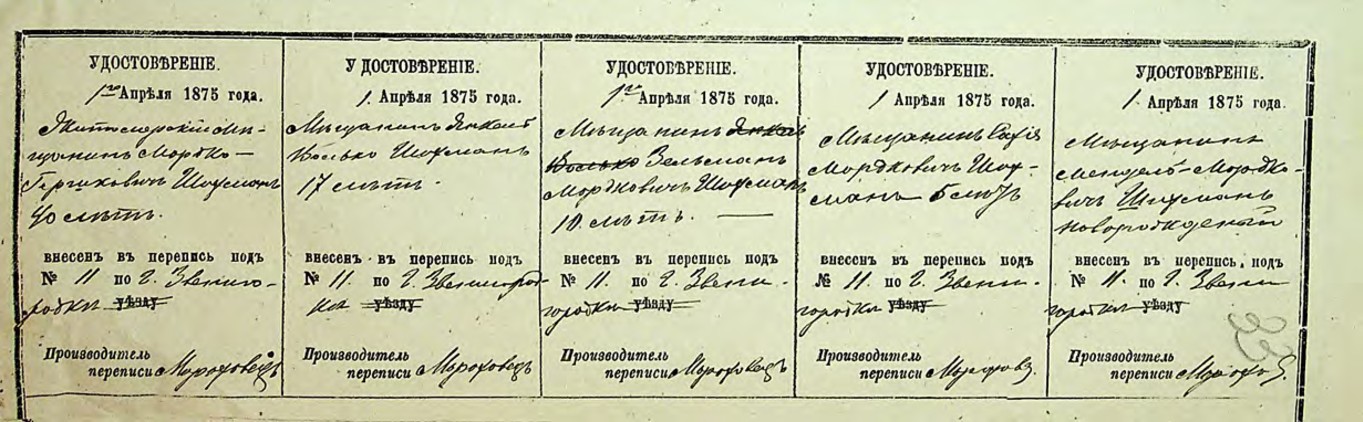 УДОСТОВѢРЕНІЕ.
1го Апрѣля 1875 года.
Житомерскій Мѣ-
щанинъ Мордко-
Гершковичъ Шохманъ
40 лѣтъ.
внесенъ въ перепись подъ
№ 11 по г. Звениго-
родки уѣзду
Производитель
переписи Мороховецъ
УДОСТОВѢРЕНІЕ.
1. Апрѣля 1875 года.
Мѣщанинъ Янкель
Волько Шохманъ
17 лѣтъ.
внесенъ въ перепись подъ
№ 11. по г. Звенигород-
ки уѣзду
Производитель
переписи Мороховецъ
УДОСТОВѢРЕНІЕ.
1го Апрѣля 1875 года.
Мѣщанинъ Янкель
Волько Зельманъ
Мордковичъ Шохманъ
10 лѣтъ.
внесенъ въ перепись подъ
№ 11. по г. Звени-
городки уѣзду
Производитель
переписи Мороховецъ
УДОСТОВѢРЕНІЕ.
1 Апрѣля 1875 года.
Мѣщанинъ
Мордковичъ Шох-
манъ 5 лѣтъ
внесенъ въ перепись подъ
№ 11. по г. Звени-
городки уѣзду
Производитель
переписи
УДОСТОВѢРЕНІЕ.
1. Апрѣля 1875 года.
Мѣщанинъ
Мендель-Мордко-
вичъ Шохманъ
новорожденый
внесенъ въ перепись подъ
№ 11. по г. Звени
городки уѣзду
Производитель
переписи